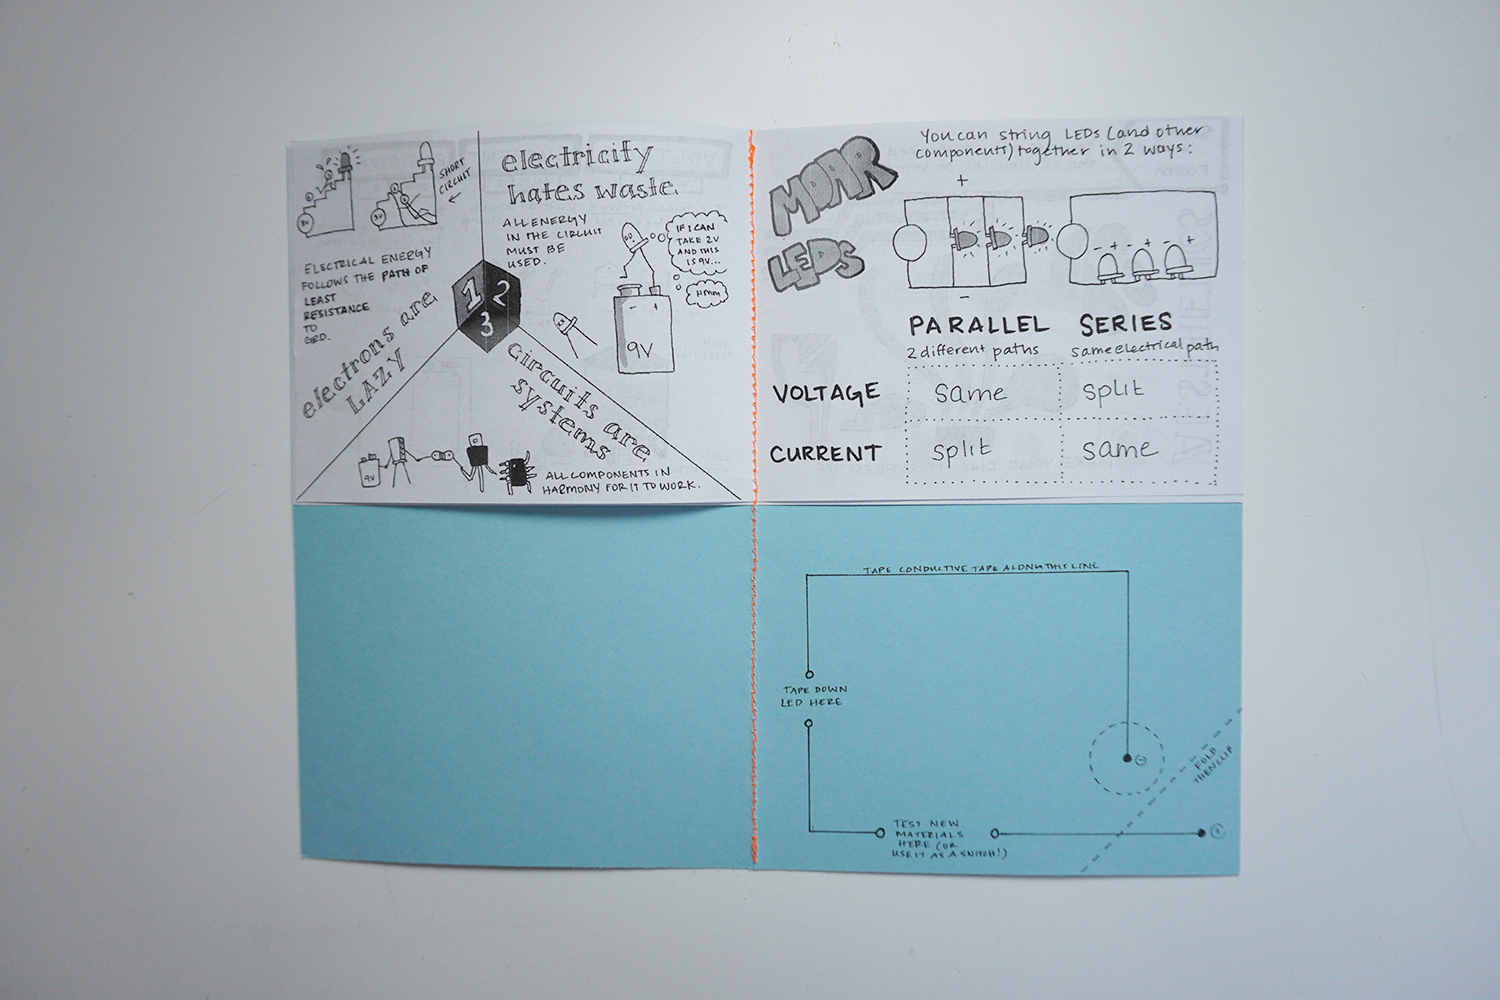 SHORT
CIRCUIT
9V
9V
ELECTRICAL ENERGY
FOLLOWS THE PATH OF
LEAST
RESISTANCE
TO
GRD.
electrons are
LAZY
1 2
3
electricity
hates waste
ALL ENERGY
IN THE CIRCUIT
MUST BE
USED.
IF I CAN
TAKE 2V
AND THIS
IS 9V...
Hmm
- +
9V
circuits are
systems
9V
ALL COMPONENTS IN
HARMONY FOR IT TO WORK.
MOAR
LEDS
You can string LEDs (and other
components) together in 2 ways:
+
-
- + - + +
PARALLEL SERIES
2 different paths same electrical path
VOLTAGE same split
CURRENT split same
TAPE CONDUCTIVE TAPE ALONG THIS LINE
TAPE DOWN
LED HERE
-
FOLD
THEN CLIP
TEST NEW
MATERIALS
HERE (OR
USE IT AS A SWITCH!)
+